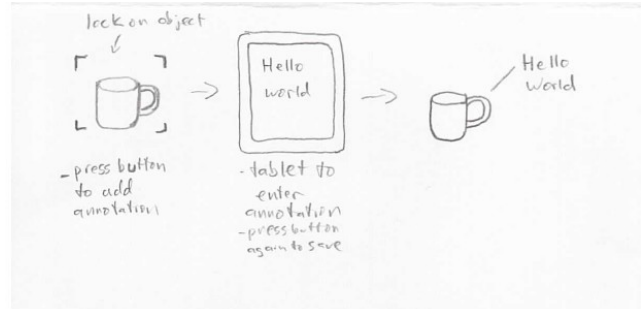 lock on object
- press button
to add
annotation
Hello
world
- tablet to
enter
annotation
- press button
again to save
Hello
World